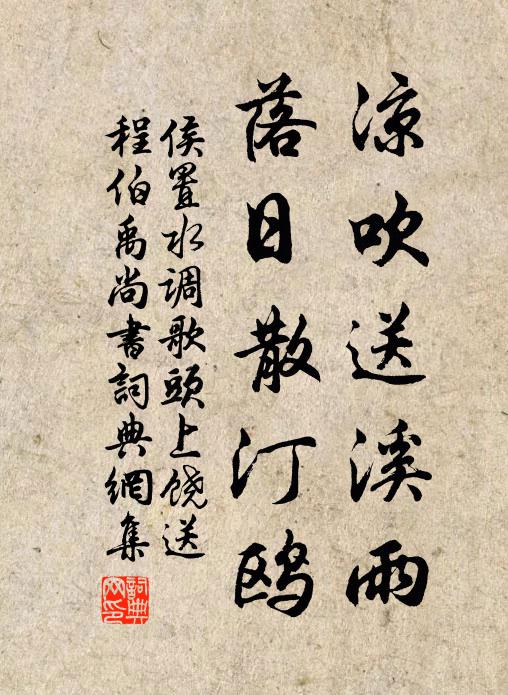 凉吹送溪雨
落日散汀鸥
侯置水调歌頭上饶送
程伯禹尚書詞典網集
詞典
网印